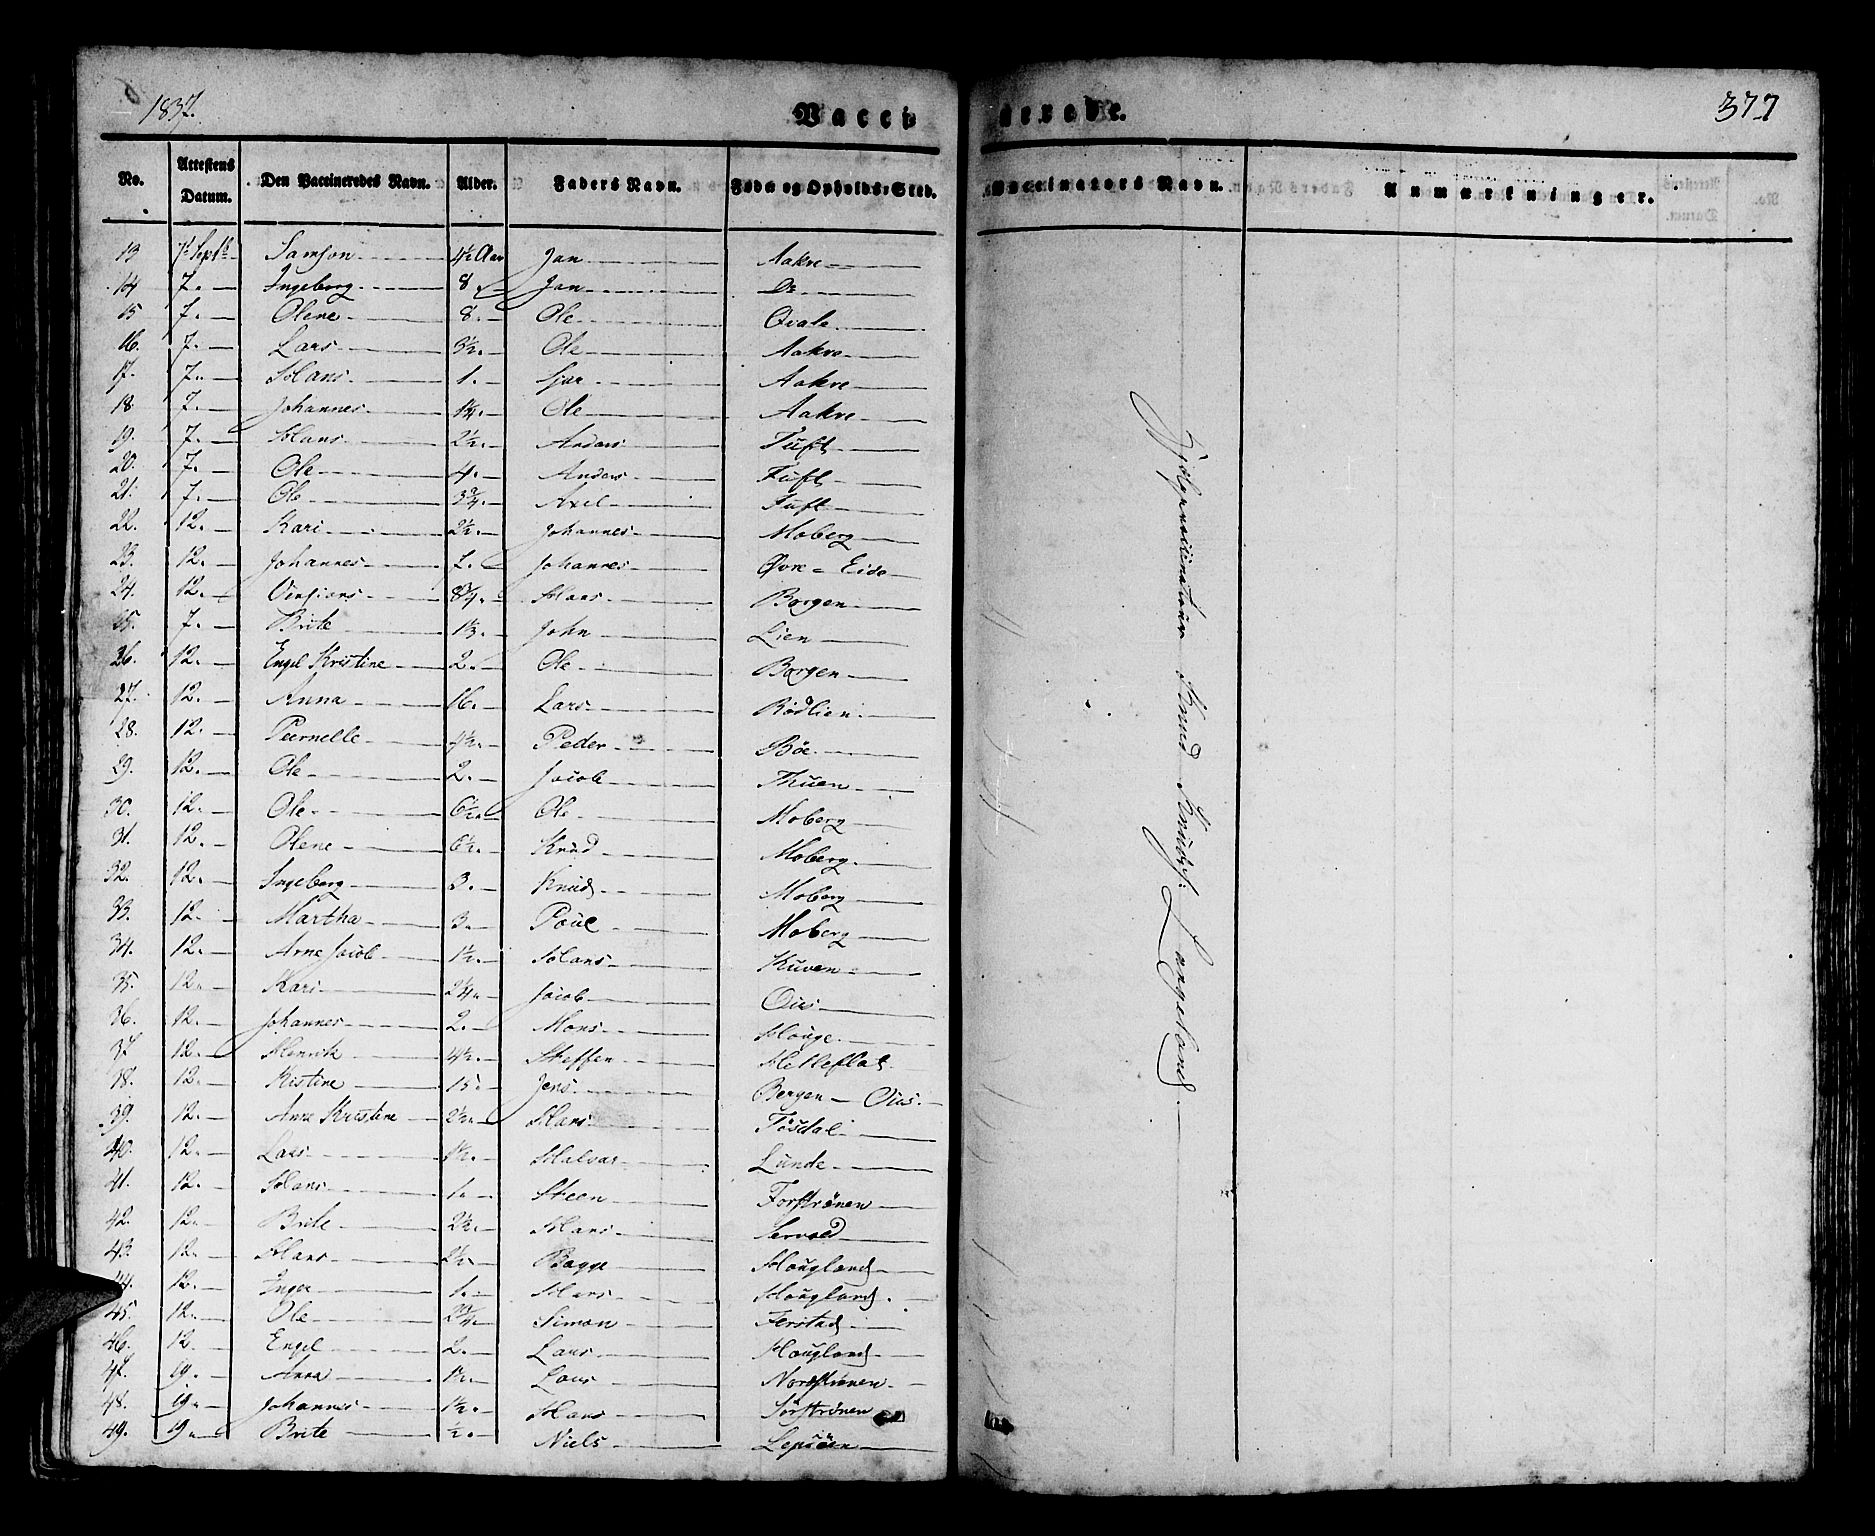 1837. Vaccinerede. 377
No. Attestens Datum. Den Vaccineredes Navn. Alder. Faders Navn. Føde og Opholds-Sted. Vaccinateurs Navn. Anmærkninger.
13 7de Septb. Samson 4½ Aar Jan Aakre
14 7. Ingeborg 8. Jan Do
15 7. Olene 8. Ole Qvale
16. 7. Lars 3½. Ole Aakre
17. 7. Hans 1. Aakre
18 7. Johannes 1¼. Ole Aakre
19. 7. Hans 2½. Anders Tuft
20. 7. Ole 4. Anders Tuft
21. 7. Ole 3¾. Axel Tuft
22. 12. Kari 2½. Johannes Moberg
23. 12. Johannes 7. Johannes Øvre-Eide
24. 12. 8¾. Hans Borgen
25. 7. Brite 1⅓. John Lien
26. 12. Engel Kristine 2. Ole Borgen
27. 12. Anna 16. Lars Rödlien
28. 12. Peernelle 4½. Peder Böe
29. 12. Ole 2. Jacob Thuen
30. 12. Ole 6½. Ole Moberg
31. 12. Olene 6½. Knud Moberg
32. 12. Ingeborg 3. Knud Moberg
33. 12. Martha 3. Poul Moberg
34. 12. Arne Jacob 1½. Hans Kuven
35. 12. Kari 2¼. Jacob Ous
36. 12. Johannes 2. Mons Houge
37 12. Henrik 4½. Steffen Helleflat
38. 12. Kistine 15. Jens Bergen - Ous.
39. 12. Anne Kristine 2½. Hans Tösdal
40. 12. Lars 1½. Halvar Lunde
41. 12. Hans 1. Steen Forströnen
42. 12. Brite 2½. Hans Servold
43. 12. Hans 2½. Bagge Hougland
44. 12. Inger 1. Hans Hougland.
45. 12. Ole 2¾. Simon Ferstad
46. 12. Engel 2. Lars Hougland
47. 19. Anna 1½. Lars Nordströnen
48. 19. Johannes 1½. Hans Sörströnen
49. 19. Brite ½. Niels Lepsöen
Hjælpevaccinateur Knud Knuds: Langeland.